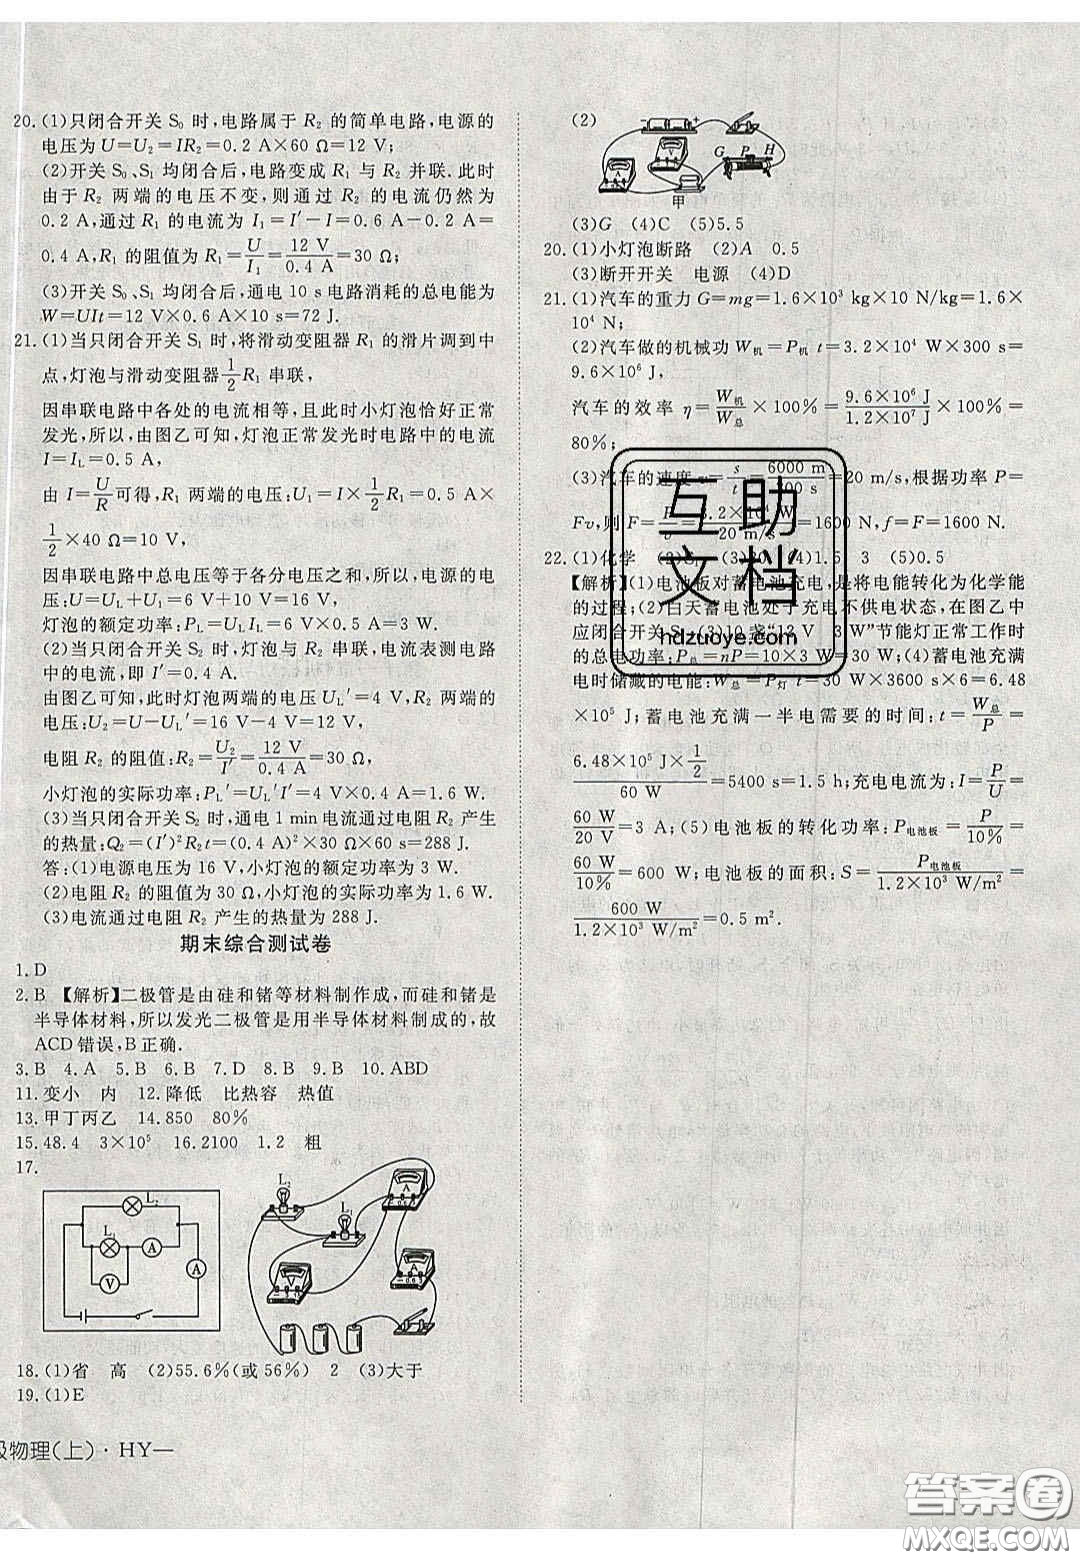 20.(1)只闭合开关 S₀ 时,电路属于 R₂ 的简单电路,电源的
电压为 U=U₂=IR₂=0.2 A×60 Ω=12 V;
(2)开关 S₀、S₁ 均闭合后,电路变成 R₁ 与 R₂ 并联.此时
由于 R₂ 两端的电压不变,则通过 R₂ 的电流仍然为
0.2 A,通过 R₁ 的电流为 I₁=I′−I=0.6 A−0.2 A=
0.4 A,R₁ 的阻值为 R₁=U/I₁=12 V/0.4 A=30 Ω;
(3)开关 S₀、S₁ 闭合后,通电 10 s 电路消耗的总电能为
W=UIt=12 V×0.6 A×10 s=72 J.
21.(1)当只闭合开关 S₁ 时,将滑动变阻器 R₁ 的滑片调到中
点,灯泡与滑动变阻器 1/2 R₁ 串联,
因串联电路中各处的电流相等,且此时小灯泡恰好正常
发光,所以,由图乙可知,灯泡正常发光时电路中的电流
I=I_L=0.5 A,
由 I=U/R 可得,R₁ 两端的电压:U₁=I×1/2 R₁=0.5 A×
1/2×40 Ω=10 V,
因串联电路中总电压等于各分电压之和,所以,电源的电
压:U=U_L+U₁=6 V+10 V=16 V,
灯泡的额定功率:P_L=U_L I_L=6 V×0.5 A=3 W.
(2)当只闭合开关 S₂ 时,灯泡与 R₂ 串联,电流表测电路
中的电流,即 I′=0.4 A.
由图乙可知,此时灯泡两端的电压 U_L′=4 V,则 R₂ 两端的
电压:U₂=U−U_L′=16 V−4 V=12 V,
电阻 R₂ 的阻值:R₂=U₂/I′=12 V/0.4 A=30 Ω,
小灯泡的实际功率:P_L′=U_L′I′=4 V×0.4 A=1.6 W.
(3)当只闭合开关 S₂ 时,通电 1 min 电流通过电阻 R₂ 产生
的热量:Q₂=(I′)²R₂t=(0.4 A)²×30 Ω×60 s=288 J.
答:(1)电源电压为 16 V,小灯泡的额定功率为 3 W.
(2)电阻 R₂ 的阻值为 30 Ω,小灯泡的实际功率为 1.6 W.
(3)电流通过电阻 R₂ 产生的热量为 288 J.
期末综合测试卷
1.D
2.B 【解析】二极管是由硅和锗等材料制作成,而硅和锗是
半导体材料,所以发光二极管是用半导体材料制成的,故
ACD 错误,B 正确.
3.B 4.A 5.B 6.B 7.D 8.B 9.B 10.ABD
11.变小 内 12.降低 比热容 热值
13.甲丁丙乙 14.850 80%
15.48.4 3×10⁵ 16.2100 1.2 粗
17.
L₂
L₁
A
A
V
L₂
L₁
A
V
A
18.(1)省 高 (2)55.6%(或 56%) 2 (3)大于
19.(1)E
级物理(上)·HY—
(2)
− +
A
V
G P H
甲
(3)G (4)C (5)5.5
20.(1)小灯泡断路 (2)A 0.5
(3)断开开关 电源 (4)D
21.(1)汽车的重力 G=mg=1.6×10³ kg×10 N/kg=1.6×
10⁴ N;
(2)汽车做的机械功 W机=P机 t=3.2×10⁴ W×300 s=
9.6×10⁶ J,
汽车的效率 η=W机/W总×100%=9.6×10⁶ J/1.2×10⁷ J×100%=
80%;
(3)汽车的速度 v=s/t=6000 m/300 s=20 m/s,根据功率 P=
Fv,则 F=P/v=3.2×10⁴ W/20 m/s=1600 N,f=F=1600 N.
22.(1)化学 (4)1.5 3 (5)0.5
【解析】(1)电池板对蓄电池充电,是将电能转化为化学能
的过程;(2)白天蓄电池处于充电不供电状态,在图乙中
应闭合开关 (3)10 盏“12 V 3 W”节能灯正常工作时
的总电功率:P总=nP=10×3 W=30 W;(4)蓄电池充满
电时储藏的电能:W总=P灯 t=30 W×3600 s×6=6.48
×10⁵ J;蓄电池充满一半电需要的时间:t=W总/P=
6.48×10⁵ J×1/2/60 W=5400 s=1.5 h;充电电流为:I=P/U=
60 W/20 V=3 A;(5)电池板的转化功率:P电池板=P/10%=
60 W/10%=600 W;电池板的面积:S=P电池板/1.2×10³ W/m²=
600 W/1.2×10³ W/m²=0.5 m².
互助
文档
hdzuoye.com
答案卷
MXQE.COM